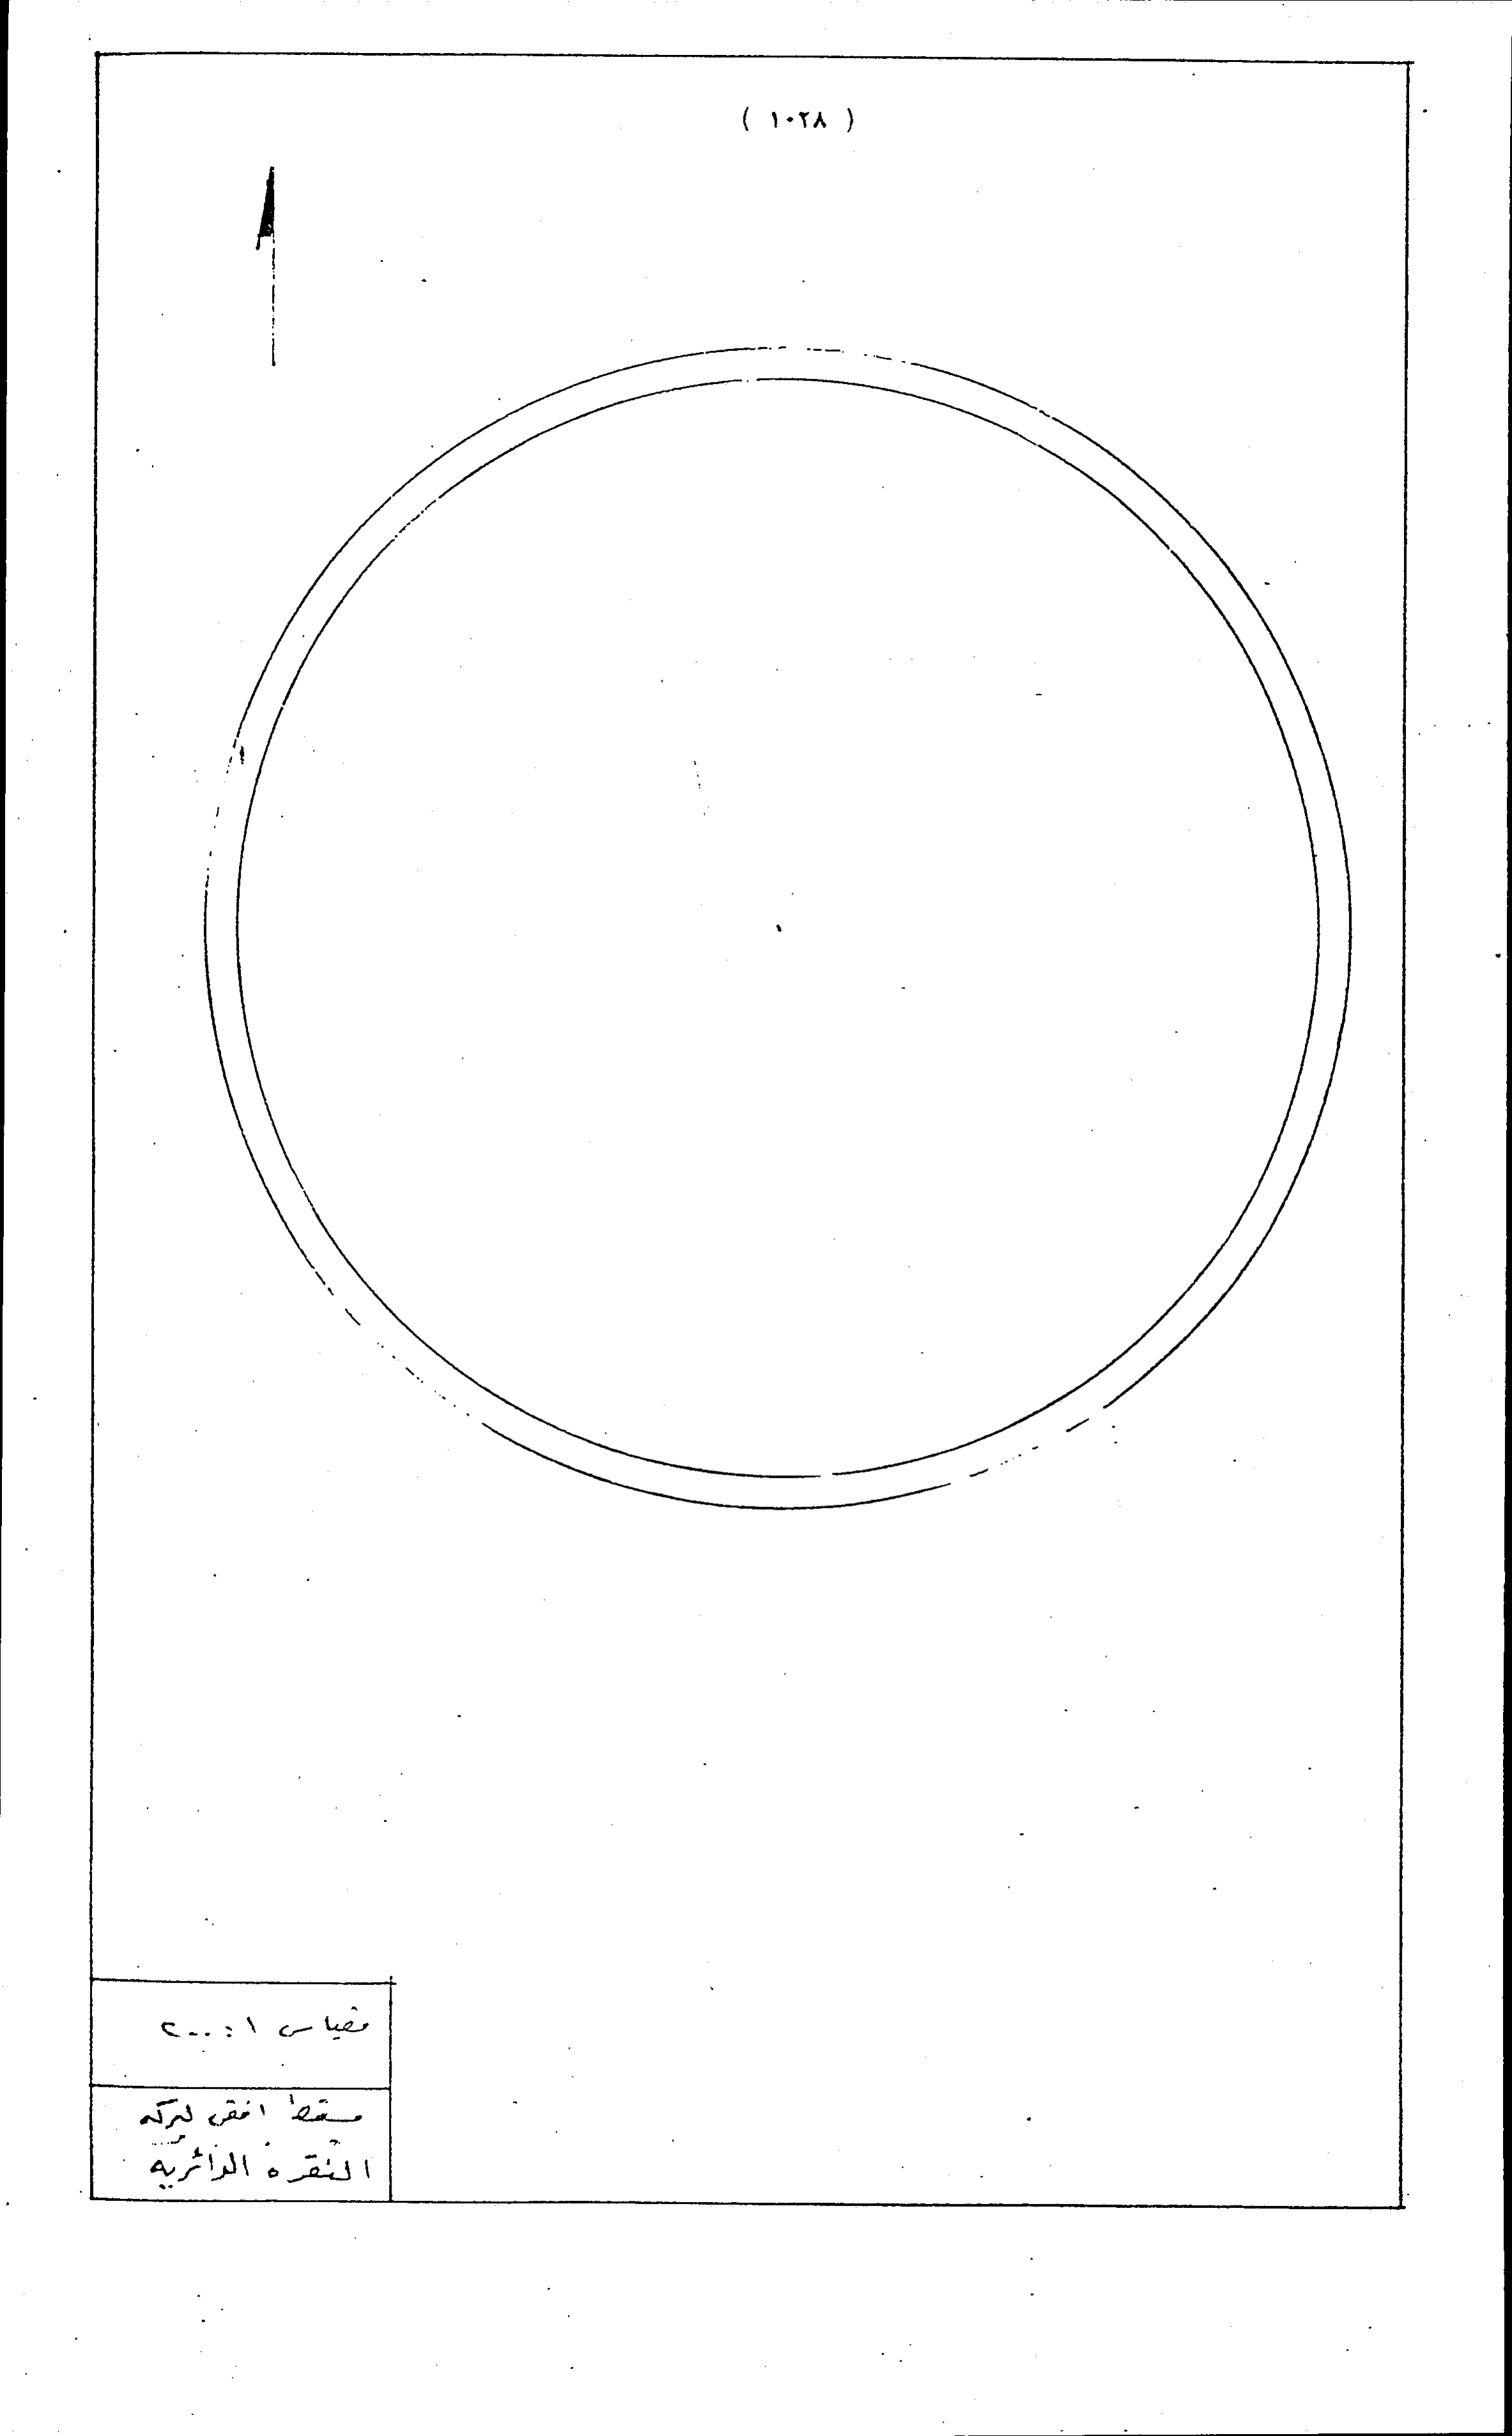 ( ١٠٢٨ )
مقياس ١ : ٢٠٠
مسقط افقى لبركه
النقره الدائرية